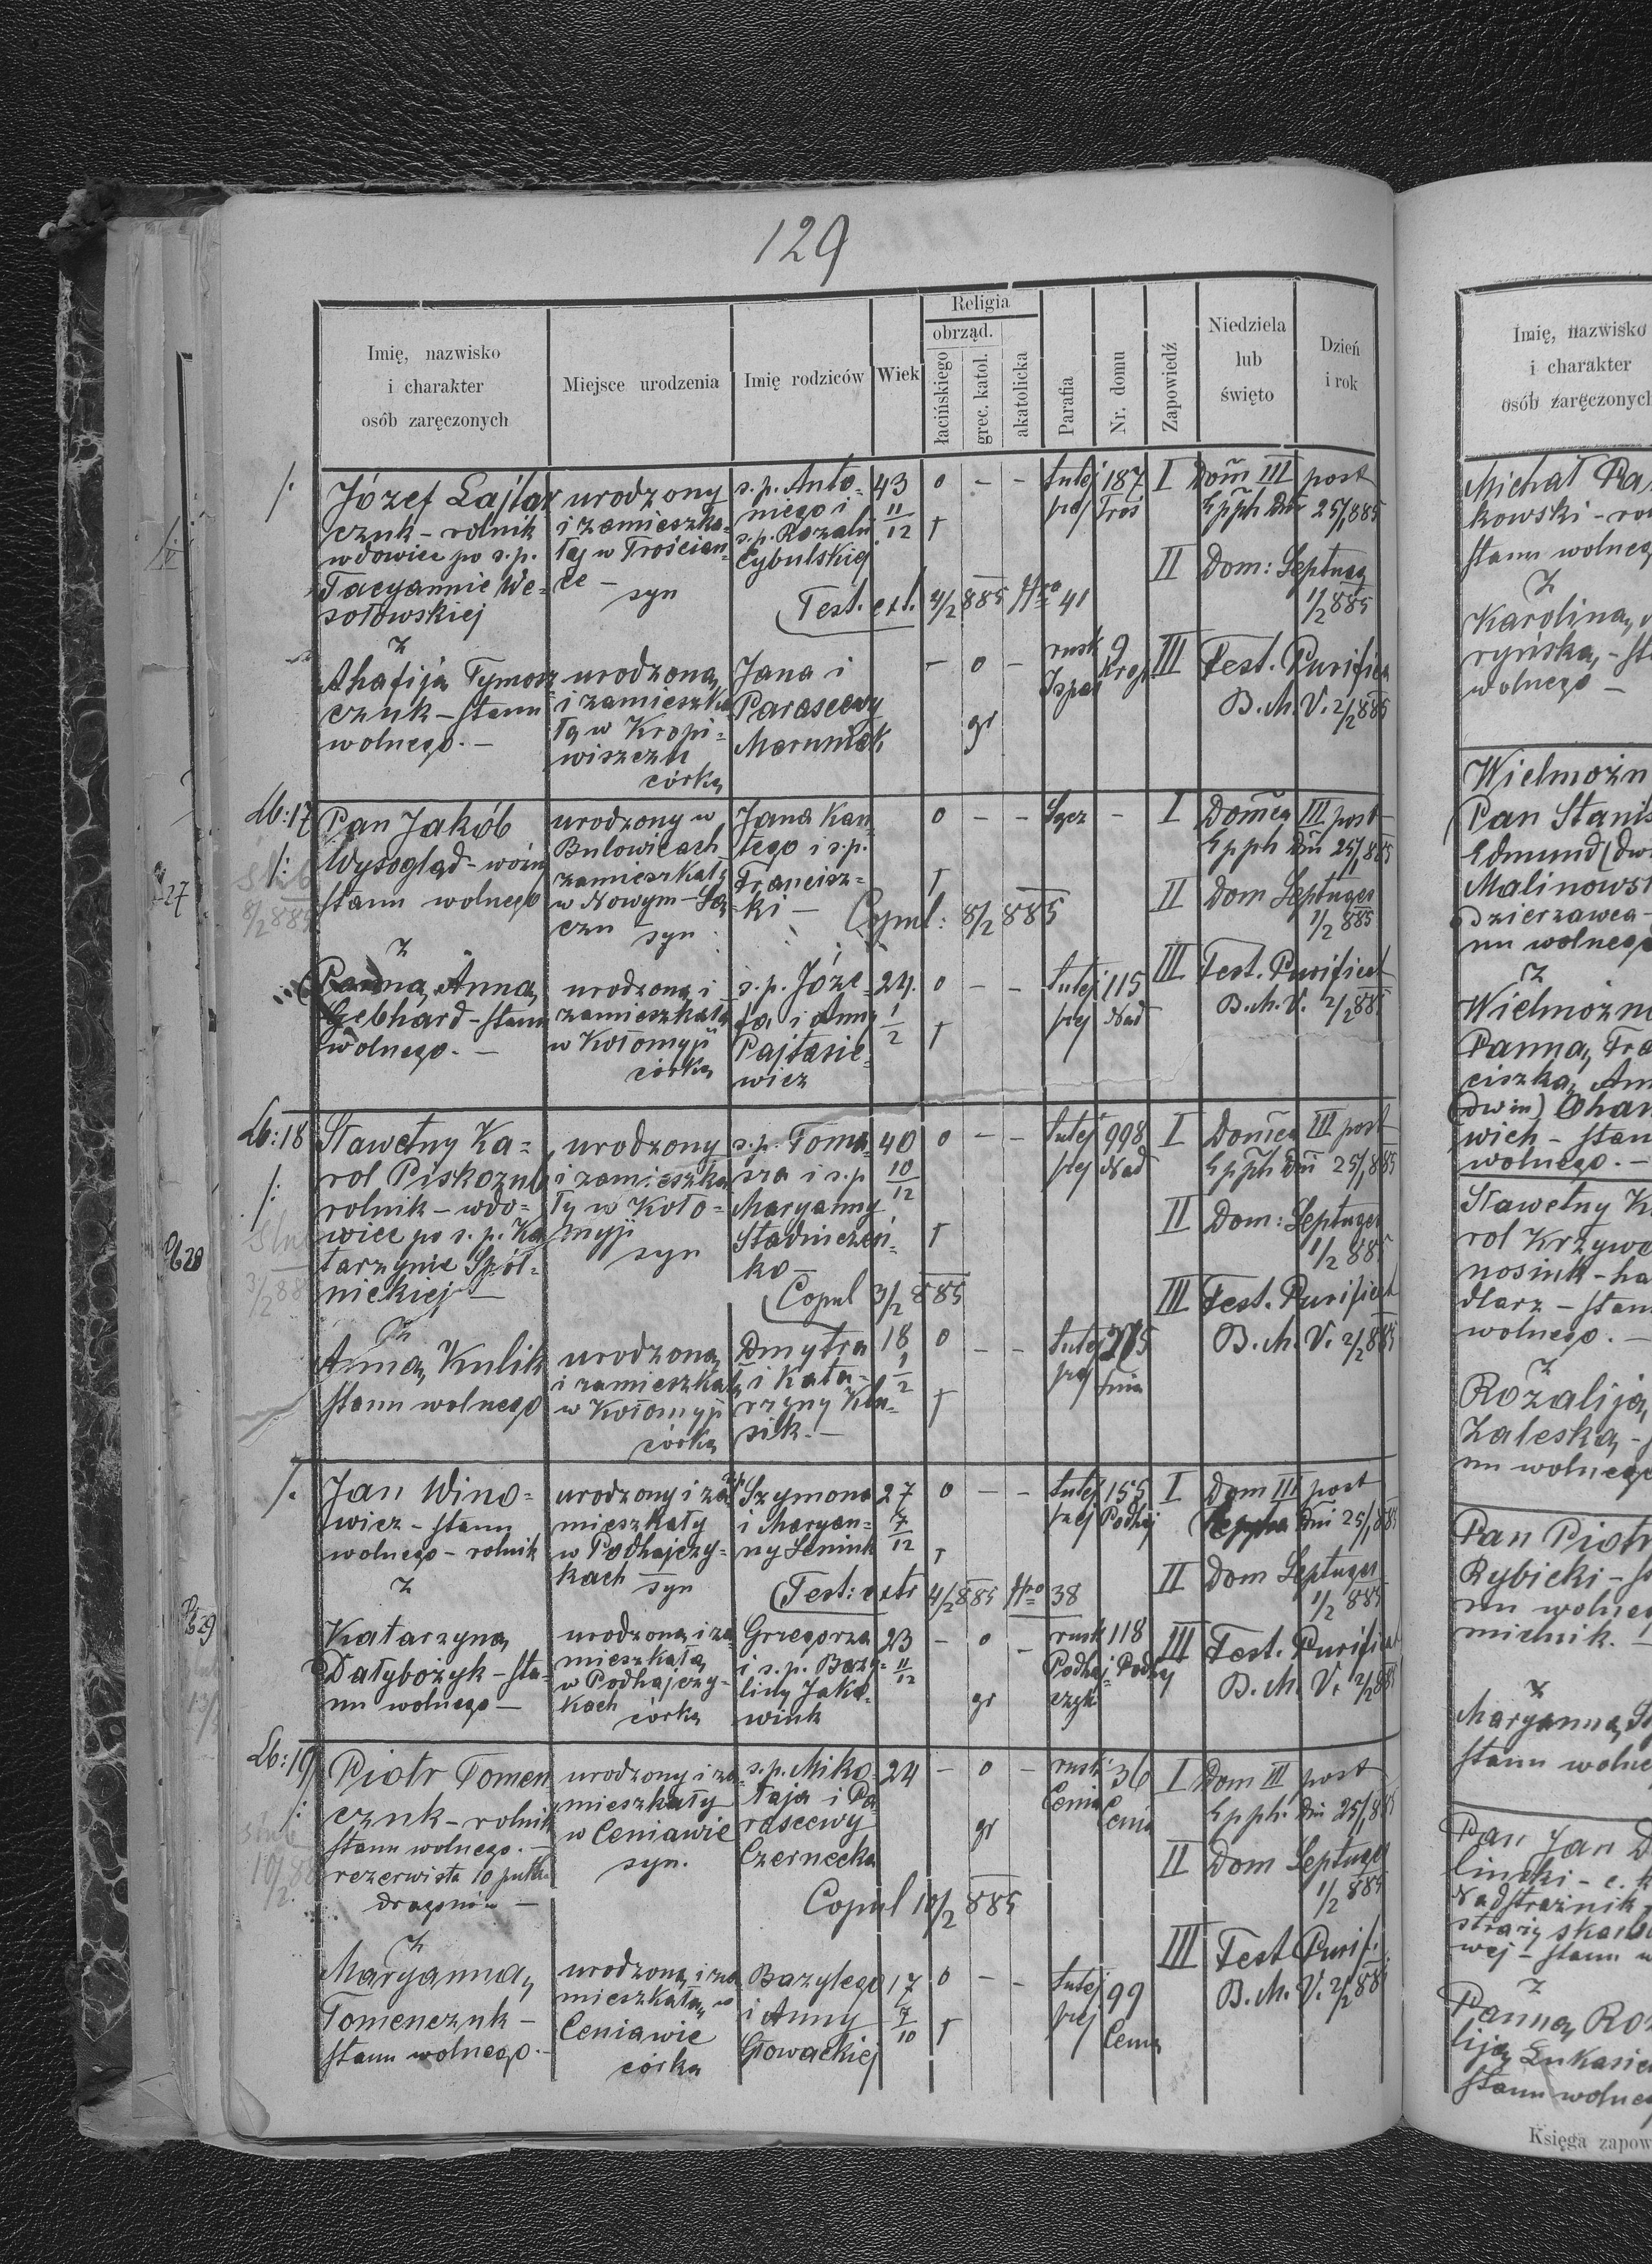 129
Imię, nazwisko
i charakter
osób zaręczonych
Miejsce urodzenia
Imię rodziców
Wiek
Religia
obrząd.
łacińskiego
grec. katol.
akatolicka
Parafia
Nr. domu
Zapowiedź
Niedziela
lub
święto
Dzień
i rok
Józef Lajtar
czuk - rolnik
wdowiec po s.p.
Tacyannie We-
sołowskiej
z
urodzony
i zamieszka-
łej w Trościan-
ce -
syn
s.p. Anto-
niego i
s.p. Rozalii
Cybulskiej
43
11/12
o - -
†
tutej
szej
187
Tros
I Dom III post
Epph Dni 25/1 885
II Dom: Septuag
1/2 885
Test. ext. 4/2 885 Nro 41
Ahafija Tymosz
czuk - stanu
wolnego. -
urodzona
i zamieszka
ła w Kropi-
wiszczu
córka
Jana i
Parascewy
Maruniak
- o -
gr
rusk
Ispas
9
Krop
III Fest. Purifica
B. M. V. 2/2 885
Lb: 17
Pan Jakób
Wysogląd - woźn
stanu wolnego
z
urodzony w
Bulowicach
zamieszkały
w Nowym - Są-
czu syn
Jana Kan
tego i s.p.
Francisz-
ki -
o - -
†
Sącz -
I Domca III post
Epph Dni 25/1 885
II Dom Septuages
1/2 885
Copul: 8/2 885
ślub
8/2 885
Panna Anna
Gebhard - stanu
wolnego. -
urodzona i
zamieszkała
w Kołomyji
córka
s.p. Józe-
fa i Anny
Pajtasie-
wicz
24
1/2
o - -
†
tutej
szej
115
Nad
III Fest. Purificat
B. M. V. 2/2 885
Lb: 18
Sławetny Ka-
rol Piskozub
rolnik - wdo-
wiec po s.p. Ka
tarzynie Spól-
nickiej -
z
urodzony
i zamieszka
ły w Koło-
myji
syn
s.p. Toma
sza i s.p
Maryanny
Stadniczeń-
ko -
40
10/12
o - -
†
tutej
szej
998
Nad
I Domca III post
Epph Dni 25/1 885
II Dom: Septuages
1/2 885
Copul 3/2 885
3/2 885
III Fest. Purificat
B. M. V. 2/2 885
Anna Kulik
stanu wolnego
urodzona
i zamieszkała
w Kołomyji
córka
Dmytra
i Kata-
rzyny Klu-
sik. -
18
1/2
o - -
†
tutej
szej
Jan Wino-
wicz - stanu
wolnego - rolnik
z
urodzony i za
mieszkały
w Podhajczy-
kach syn
Szymona
i Maryan-
ny Seniuk
27
7/12
o - -
†
tutej
szej
155
Podhaj
I Dom III post
Dni 25/1 885
II Dom Septuages
1/2 885
Test: extr 4/2 885 Nro 38
Katarzyna
Dałybożyk - sta-
nu wolnego -
urodzona i za
mieszkała
w Podhajczy-
kach
córka
Grzegorza
i s.p. Bazy-
lidy Jako-
wiuk
23
11/12
- o -
gr
rusk
Podhaj-
czyk
118
Podhaj
III Fest. Purificat
B. M. V. 2/2 885
Lb: 19
Piotr Tomen
czuk - rolnik
stanu wolnego. -
rezerwista 10 pułku
dragonów -
z
urodzony i za-
mieszkały
w Ceniawie
syn.
s.p. Miko
łaja i Pa
rascewy
Czernecka
24
- o -
gr
rusk
Cenia
36
Cenia
I Dom III post
Epph. Dni 25/1 885
II Dom Septuages
1/2 885
Copul 10/2 885
ślub
10/2 88
Maryanna
Tomenczuk -
stanu wolnego. -
urodzona i za
mieszkała w
Ceniawie
córka
Bazylego
i Anny
Głowackiej
17
7/10
o - -
†
tutej
szej
99
Cenia
III Fest Purif.
B. M. V. 2/2 885
Imię, nazwisko
i charakter
osób zaręczonych
Michał
kowski - rol
stanu wolnego
z
Karolina
ryńska - st
wolnego -
Wielmożn
Pan Stanis
Edmund (dw
Malinows
Dzierzawca -
nu wolnego
z
Wielmożna
Panna Fra
ciszka An
(dw im)
wich - stan
wolnego. -
Sławetny K
rol Krzywo
nosiuk - ha
dlarz - stan
wolnego. -
z
Rozalija
Zaleska -
nu wolnego
Pan Piotr
Rybicki - s
nu wolneg
mielnik. -
z
Maryanna
stanu wolne
Pan Jan D
linski - c. k
Nadstrażnik
straży skarbo
wej - stanu w
z
Panna Roz
lija Łukasie
stanu wolneg
Księga zapow